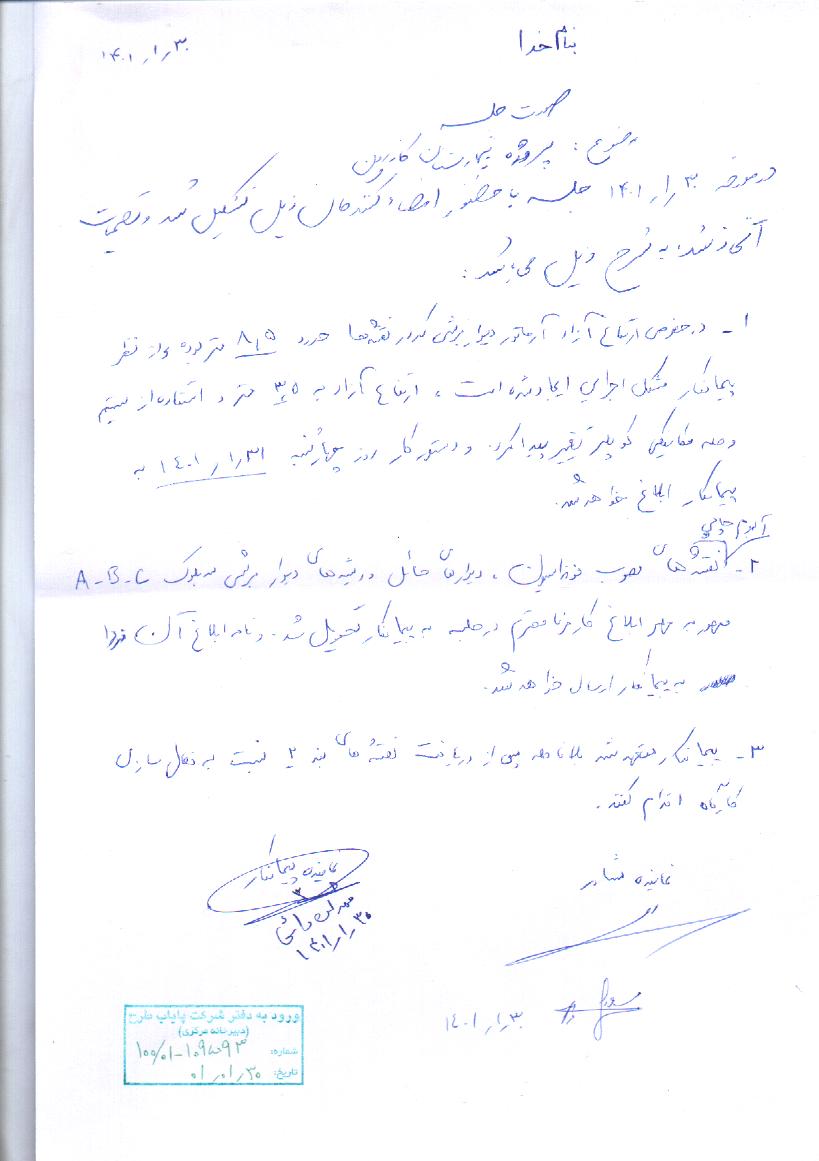 بنام خدا
۱۴۰۱/۱/۳۰
صورت جلسه
موضوع : پروژه بیمارستان کازرون
در مورخه ۱۴۰۱/۱/۳۰ جلسه با حضور امضاء کنندگان ذیل تشکیل شد و تصمیمات
اتخاذ شده به شرح ذیل می باشد :
۱- در خصوص ارتفاع آزاد آرماتور دیوار برشی که در نقشه ها حدود ۸/۵ متر بوده و از نظر
پیمانکار مشکل اجرایی ایجاد شده است ، ارتفاع آزاد به ۳/۵ متر و استفاده از سیستم
وصله مکانیکی کوپلر تغییر پیدا کرد و دستور کار روز چهارشنبه ۱۴۰۱/۱/۳۱ به
پیمانکار ابلاغ خواهد شد.
۲- نقشه های مصوب فونداسیون ، دیوارهای حائل و ریشه های دیوار برشی سه بلوک A-B-C
ممهور به مهر ابلاغ کارفرما محترم در جلسه به پیمانکار تحویل شد. و نامه ابلاغ آن فردا
به پیمانکار ارسال خواهد شد.
۳- پیمانکار متعهد شد بلافاصله پس از دریافت نقشه های بند ۲ نسبت به فعال سازی
کارگاه اقدام کند.
نماینده مشاور
نماینده پیمانکار
۱۴۰۱/۱/۳۰
۱۴۰۱/۱/۳۰
ورود به دفتر شرکت پایاب طرح
(دبیرخانه مرکزی)
شماره:
تاریخ: ۰۱/۰۱/۳۰